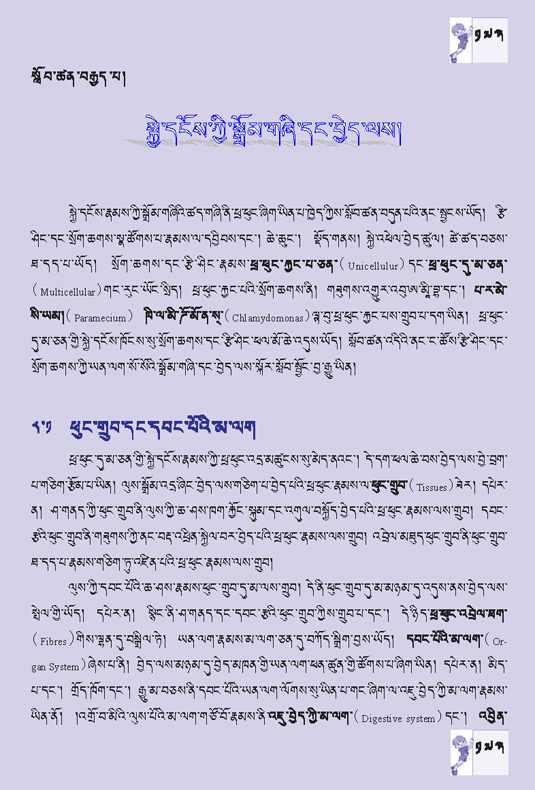 ༡༥༣
སློབ་ཚན་བརྒྱད་པ།
སྐྱེ་དངོས་ཀྱི་སྒྲོམ་གཞི་དང་བྱེད་ལས།
སྐྱེ་དངོས་རྣམས་ཀྱི་སྒྲོམ་གཞིའི་ཚད་གཞི་ནི་ཕྲ་ཕུང་ཞིག་ཡིན་པ་ཁྱེད་ཀྱིས་སློབ་ཚན་བདུན་པའི་ནང་སྦྱངས་ཡོད། རྩི་
ཤིང་དང་སྲོག་ཆགས་སྣ་ཚོགས་པ་རྣམས་ལ་དབྱིབས་དང་། ཆེ་ཆུང་། སྡོད་གནས། སྐྱེ་འཕེལ་བྱེད་ཚུལ། ཚེ་ཚད་བཅས་
ཐ་དད་པ་ཡོད། སྲོག་ཆགས་དང་རྩི་ཤིང་རྣམས་ཕྲ་ཕུང་རྐྱང་པ་ཅན་( Unicellulur) དང་ཕྲ་ཕུང་དུ་མ་ཅན་
( Multicellular) གང་རུང་ཡོང་སྲིད། ཕྲ་ཕུང་རྐྱང་པའི་སྲོག་ཆགས་ནི། གཟུགས་འགྱུར་འབུ་ཨ་མཱི་བྷ་དང་། པ་ར་མེ་
སི་ཡམ།( Paramecium ) ཁི་ལ་མི་ཌོ་མོ་ན་ས་( Chlamydomonas) ལྟ་བུ་ཕྲ་ཕུང་རྐྱང་པས་གྲུབ་པ་དག་ཡིན། ཕྲ་ཕུང་
དུ་མ་ཅན་གྱི་སྐྱེ་དངོས་ཁོངས་སུ་སྲོག་ཆགས་དང་རྩི་ཤིང་ཕལ་མོ་ཆེ་འདུས་ཡོད། སློབ་ཚན་འདིའི་ནང་ང་ཚོས་རྩི་ཤིང་དང་
སྲོག་ཆགས་ཀྱི་ཡན་ལག་སོ་སོའི་སྒྲོམ་གཞི་དང་བྱེད་ལས་སྐོར་སློབ་སྦྱོང་བྱ་རྒྱུ་ཡིན།
༨.༡ ཕུང་གྲུབ་དང་དབང་པོའི་མ་ལག
ཕྲ་ཕུང་དུ་མ་ཅན་གྱི་སྐྱེ་དངོས་རྣམས་ཀྱི་ཕྲ་ཕུང་འདྲ་མཚུངས་སུ་མེད་ནའང་། དེ་དག་ཕལ་ཆེ་བས་བྱེད་ལས་བྱེ་བྲག་
པ་གཅིག་རྩོམ་པ་ཡིན། ལུས་སྒྲོམ་འདྲ་ཞིང་བྱེད་ལས་གཅིག་པ་བྱེད་པའི་ཕྲ་ཕུང་རྣམས་ལ་ཕུང་གྲུབ་( Tissues) ཟེར། དཔེར་
ན། ཤ་གནད་ཀྱི་ཕུང་གྲུབ་ནི་ལུས་ཀྱི་ཆ་ཤས་ཁག་རྐྱོང་སྐུམ་དང་འགུལ་བསྐྱོད་བྱེད་པའི་ཕྲ་ཕུང་རྣམས་ལས་གྲུབ། དབང་
རྩའི་ཕུང་གྲུབ་ནི་གཟུགས་ཀྱི་ནང་བརྡ་འཕྲིན་སྐྱེལ་བར་བྱེད་པའི་ཕྲ་ཕུང་རྣམས་ལས་གྲུབ། འབྲེལ་མཐུད་ཕུང་གྲུབ་ནི་ཕུང་གྲུབ་
ཐ་དད་པ་རྣམས་གཅིག་ཏུ་འཛིན་པའི་ཕྲ་ཕུང་རྣམས་ལས་གྲུབ།
ལུས་ཀྱི་དབང་པོའི་ཆ་ཤས་རྣམས་ཕུང་གྲུབ་དུ་མ་ལས་གྲུབ། དེ་ནི་ཕུང་གྲུབ་དུ་མ་མཉམ་དུ་འདུས་ནས་བྱེད་ལས་
སྤེལ་གྱི་ཡོད། དཔེར་ན། སྙིང་ནི་ཤ་གནད་དང་དབང་རྩའི་ཕུང་གྲུབ་ཀྱིས་གྲུབ་པ་དང་། དེ་ཉིད་ཕྲ་ཕུང་འབྲེལ་ཐག་
( Fibres) གིས་ལྷན་དུ་བསྒྲིལ་ཏེ། ཡན་ལག་རྣམས་མ་ལག་ཅན་དུ་བཀོད་སྒྲིག་བྱས་ཡོད། དབང་པོའི་མ་ལག་( Or-
gan System) ཞེས་པ་ནི། བྱེད་ལས་མཉམ་དུ་བྱེད་མཁན་གྱི་ཡན་ལག་ཕན་ཚུན་གྱི་ཚོགས་པ་ཞིག་ཡིན། དཔེར་ན། མིད་
པ་དང་། གྲོད་ཁོག་དང་། རྒྱུ་མ་བཅས་ནི་དབང་པོའི་ཡན་ལག་ལོགས་སུ་ཡིན་པ་གང་ཞིག་ལ་འཇུ་བྱེད་ཀྱི་མ་ལག་རྣམས་
ཡིན་ནོ། །འགྲོ་བ་མིའི་ལུས་པོའི་མ་ལག་གཙོ་བོ་རྣམས་ནི་འཇུ་བྱེད་ཀྱི་མ་ལག་( Digestive system) དང་། འབྱིན་
༡༥༣